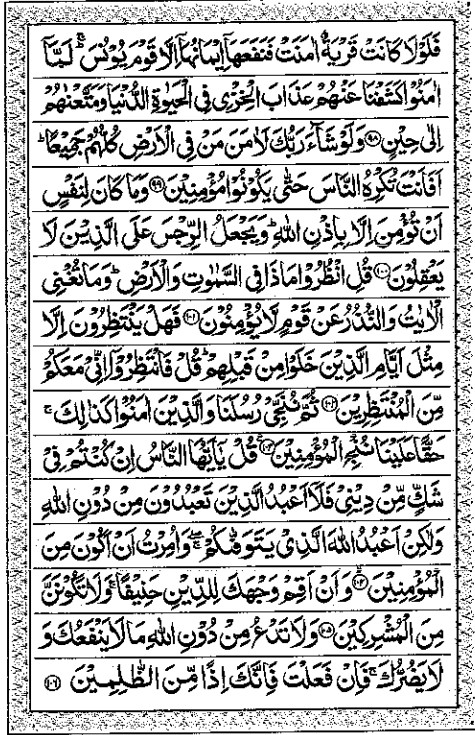 فَلَوْلَا كَانَتْ قَرْيَةٌ اٰمَنَتْ فَنَفَعَهَاۤ اِيْمَانُهَاۤ اِلَّا قَوْمَ يُوْنُسَ ؕ لَمَّاۤ
اٰمَنُوْا كَشَفْنَا عَنْهُمْ عَذَابَ الْخِزْيِ فِي الْحَيٰوةِ الدُّنْيَا وَمَتَّعْنٰهُمْ
اِلٰى حِيْنٍ ﴿۹۸﴾ وَلَوْ شَآءَ رَبُّكَ لَاٰمَنَ مَنْ فِي الْاَرْضِ كُلُّهُمْ جَمِيْعًا ؕ
اَفَاَنْتَ تُكْرِهُ النَّاسَ حَتّٰى يَكُوْنُوْا مُؤْمِنِيْنَ ﴿۹۹﴾ وَمَا كَانَ لِنَفْسٍ
اَنْ تُؤْمِنَ اِلَّا بِاِذْنِ اللّٰهِ ؕ وَيَجْعَلُ الرِّجْسَ عَلَى الَّذِيْنَ لَا
يَعْقِلُوْنَ ﴿۱۰۰﴾ قُلِ انْظُرُوْا مَاذَا فِي السَّمٰوٰتِ وَالْاَرْضِ ؕ وَمَا تُغْنِي
الْاٰيٰتُ وَالنُّذُرُ عَنْ قَوْمٍ لَّا يُؤْمِنُوْنَ ﴿۱۰۱﴾ فَهَلْ يَنْتَظِرُوْنَ اِلَّا
مِثْلَ اَيَّامِ الَّذِيْنَ خَلَوْا مِنْ قَبْلِهِمْ ؕ قُلْ فَانْتَظِرُوْۤا اِنِّيْ مَعَكُمْ
مِّنَ الْمُنْتَظِرِيْنَ ﴿۱۰۲﴾ ثُمَّ نُنَجِّيْ رُسُلَنَا وَالَّذِيْنَ اٰمَنُوْا كَذٰلِكَ ۚ
حَقًّا عَلَيْنَا نُنْجِ الْمُؤْمِنِيْنَ ﴿۱۰۳﴾ قُلْ يٰۤاَيُّهَا النَّاسُ اِنْ كُنْتُمْ فِيْ
شَكٍّ مِّنْ دِيْنِيْ فَلَاۤ اَعْبُدُ الَّذِيْنَ تَعْبُدُوْنَ مِنْ دُوْنِ اللّٰهِ
وَلٰكِنْ اَعْبُدُ اللّٰهَ الَّذِيْ يَتَوَفّٰىكُمْ ۖۚ وَاُمِرْتُ اَنْ اَكُوْنَ مِنَ
الْمُؤْمِنِيْنَ ﴿۱۰۴﴾ وَاَنْ اَقِمْ وَجْهَكَ لِلدِّيْنِ حَنِيْفًا ۚ وَلَا تَكُوْنَنَّ
مِنَ الْمُشْرِكِيْنَ ﴿۱۰۵﴾ وَلَا تَدْعُ مِنْ دُوْنِ اللّٰهِ مَا لَا يَنْفَعُكَ وَ
لَا يَضُرُّكَ ۚ فَاِنْ فَعَلْتَ فَاِنَّكَ اِذًا مِّنَ الظّٰلِمِيْنَ ﴿۱۰۶﴾